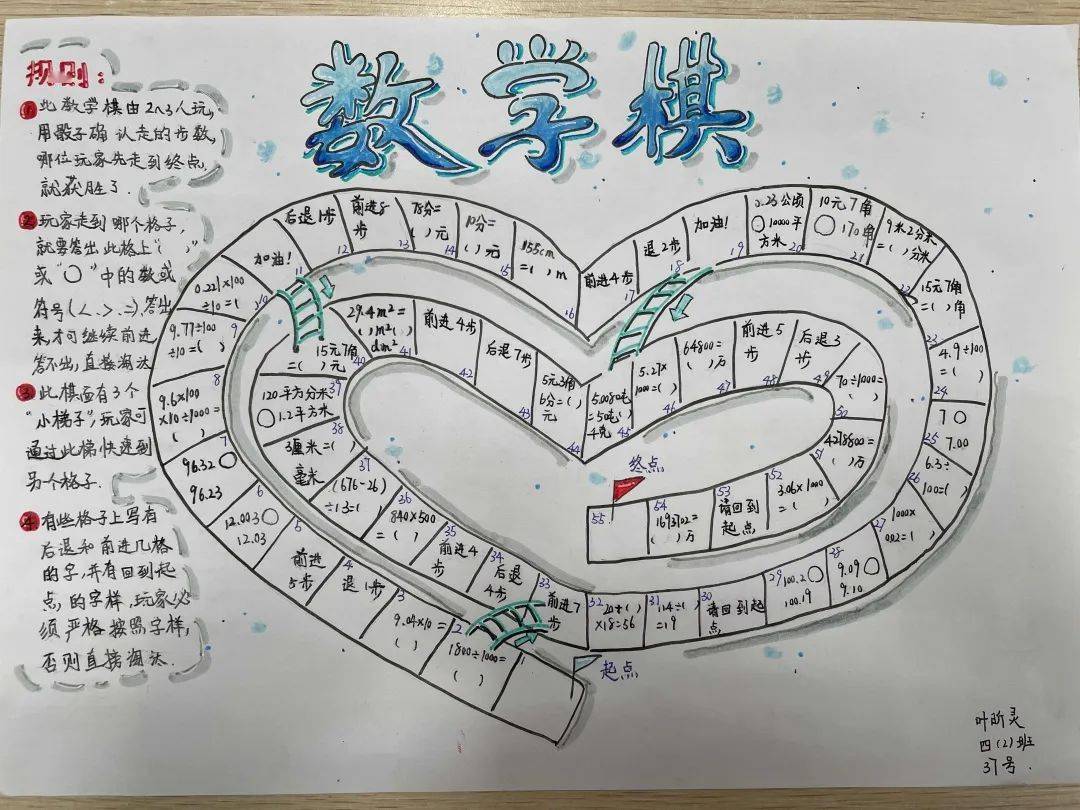 数学棋
规则:
① 此数学棋由2~3人玩,
用骰子确认走的步数,
哪位玩家先走到终点,
就获胜了.
② 玩家走到哪个格子,
就要答出此格上"( )"
或"○"中的数或
符号(<、>、=),答出
来,才可继续前进
答不出,直接淘汰
③ 此棋盘有3个
"小梯子",玩家可
通过此梯快速到
另个格子.
④ 有些格子上写有
后退和前进几格
的字,并有回到起
点,的字样,玩家必
须严格按照字样,
否则直接淘汰.
起点
1
2
1800÷1000=
( )
3
9.04×10=
( )
4
退1步
5
前进
5步
6
12.003○
12.03
7
96.32○
96.23
8
9.6×100
×10÷1000=
( )
9
9.77÷100
÷10=( )
10
0.221×100
÷10=(
11
加油!
12
后退1步
13
前进8
步
14
78分=
( )元
15
10分=
( )元
16
155cm
=( )m
17
前进4步
18
退2步
19
加油!
20
0.23公顷
○1000平
方米
21
10元7角
○170角
22
9米2分米
=( )分米
23
15元7角
=( )角
24
4.9÷100
=( )
25
7○
7.00
26
6.3÷
100=( )
27
1000×
0.02=( )
28
9.09○
9.10
29
100.2○
100.19
30
请回到起
点
31
114÷( )
=19
32
20+( )
×18=56
33
前进7
步
34
后退
4步
35
前进4
步
36
840×500
=( )
37
(676-26)
÷13=( )
38
3厘米=( )
毫米
39
120平方分米
○1.2平方米
40
15元7角
=( )元
41
29.4m²=
( )m²( )
dm²
42
前进4步
43
后退7步
44
5元3角
6分=( )
元
45
5.0080吨
=50吨( )
千克
46
5.27×
1000=( )
47
64800=
( )万
48
前进5
步
49
后退3
步
50
70÷1000=
( )
51
4278800=
( )万
52
3.06×1000
=( )
53
请回到
起点
54
1693702=
( )万
55
终点
叶昕灵
四(2)班
37号.